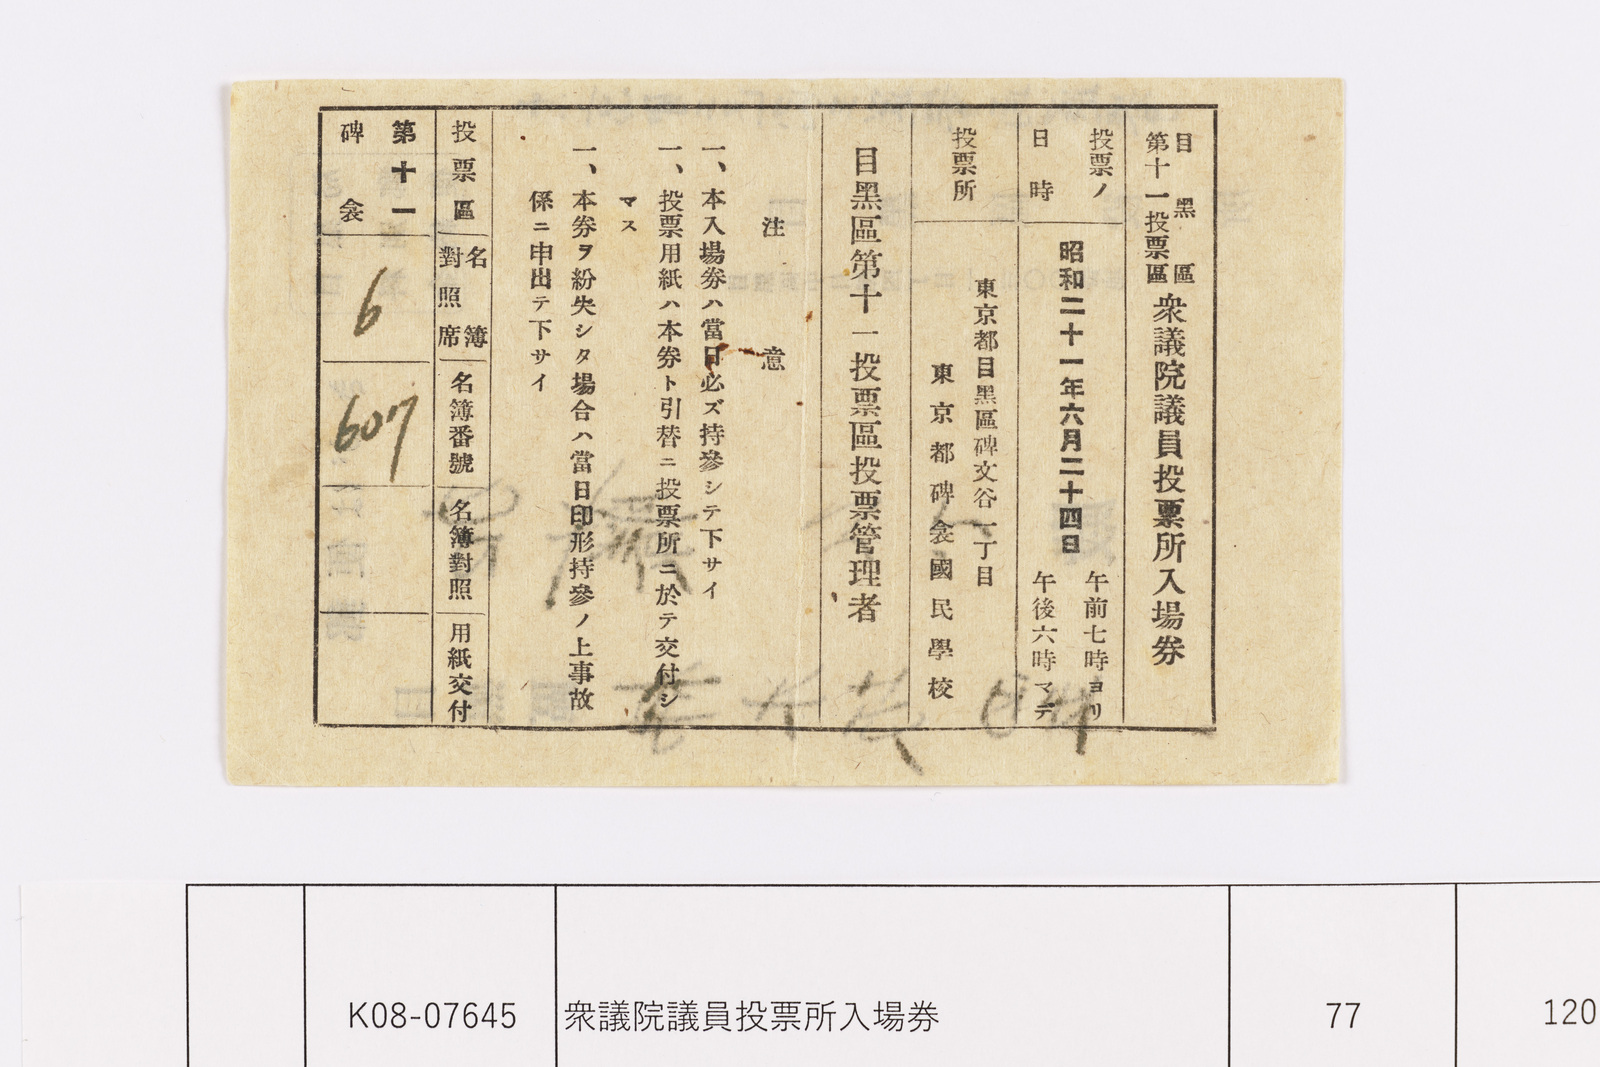 目黑區
第十一投票區
衆議院議員投票所入場券
投票ノ
日時
昭和二十一年六月二十四日
午前七時ヨリ
午後六時マデ
投票所
東京都目黑區碑文谷一丁目
東京都碑衾國民學校
目黑區第十一投票區投票管理者
注意
一、本入場券ハ當日必ズ持參シテ下サイ
一、投票用紙ハ本券ト引替ニ投票所ニ於テ交付シ
マス
一、本券ヲ紛失シタ場合ハ當日印形持參ノ上事故
係ニ申出テ下サイ
投票區
名簿
對照席
名簿番號
名簿對照
用紙交付
第十一
碑衾
6
607
K08-07645
衆議院議員投票所入場券
77
120